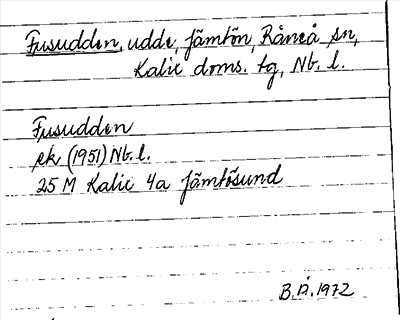 Fusudden, udde, Jämtön, Råneå sn,
Kalix doms. tg, Nb. l.
Fusudden
ek (1951) Nb. l.
25 M Kalix 4a Jämtösund
B.Å. 1972